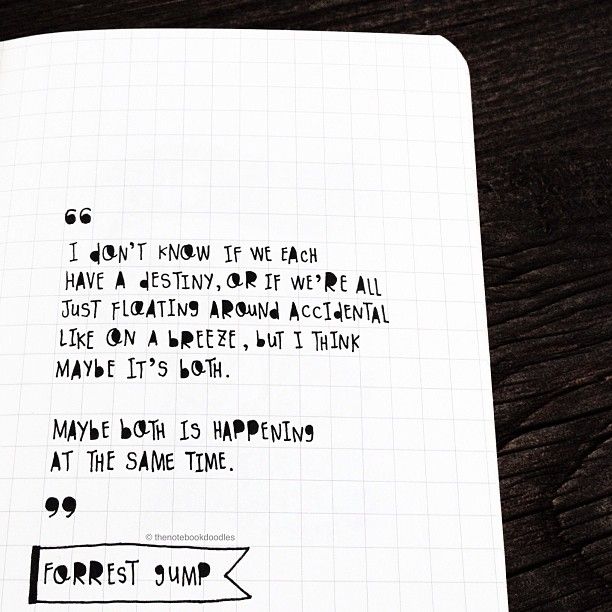 “
I don't know if we each
have a destiny, or if we're all
just floating around accidental
like on a breeze, but I think
maybe it's both.
Maybe both is happening
at the same time.
”
© thenotebookdoodles
Forrest Gump